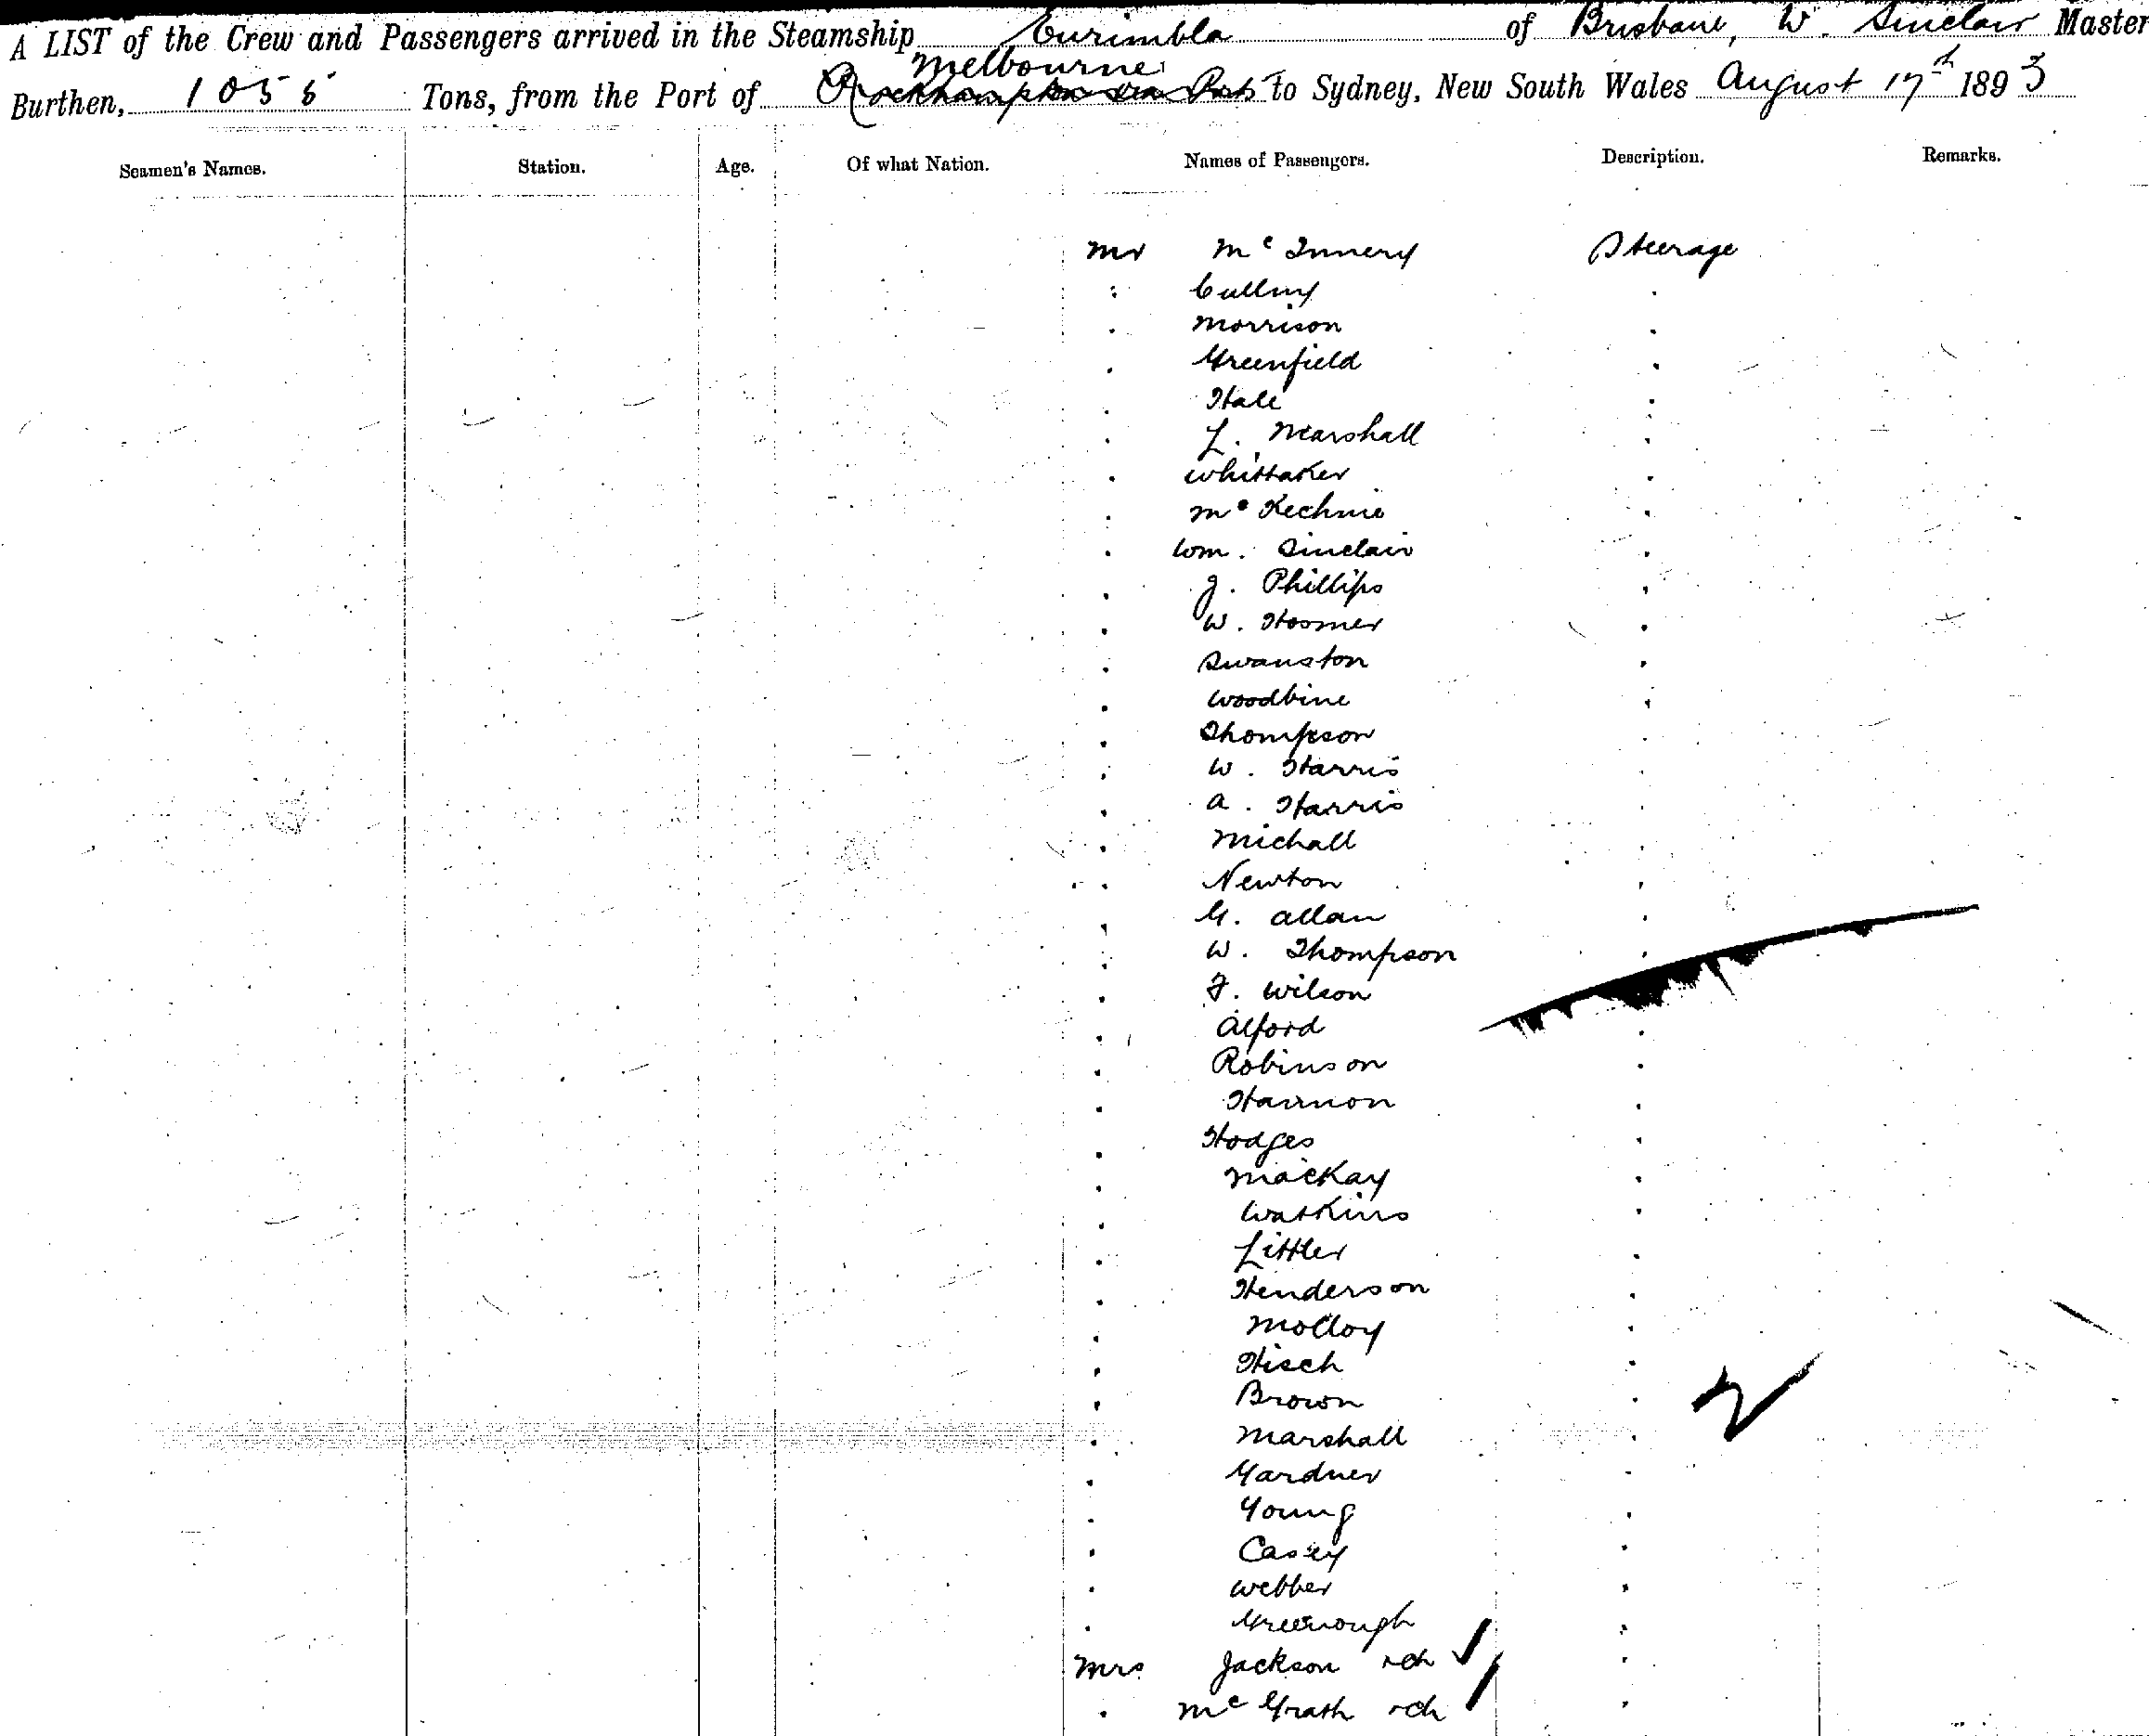 A LIST of the Crew and Passengers arrived in the Steamship Eurimbla of Brisbane, W. Sinclair Master
Melbourne
Burthen, 1055 Tons, from the Port of Rockhampton via Ports to Sydney, New South Wales August 17th 1893
Seamen's Names. Station. Age. Of what Nation. Names of Passengers. Description. Remarks.
Mr Mc Innery Steerage
Morrison
Greenfield
Hale
L. Marshall
Whittaker
Mc Kechnie
Wm. Sinclair
J. Phillips
W. Hosmer
Swanston
Woodbine
Thompson
W. Harris
A. Harris
Michall
Newton
G. Allan
W. Thompson
F. Wilson
Alford
Robinson
Hannon
Hodges
Mackay
Watkins
Littler
Henderson
Molloy
Hisch
Brown
Marshall
Gardner
Young
Casey
Webber
Greenough
Mrs Jackson + ch
Mc Grath + ch